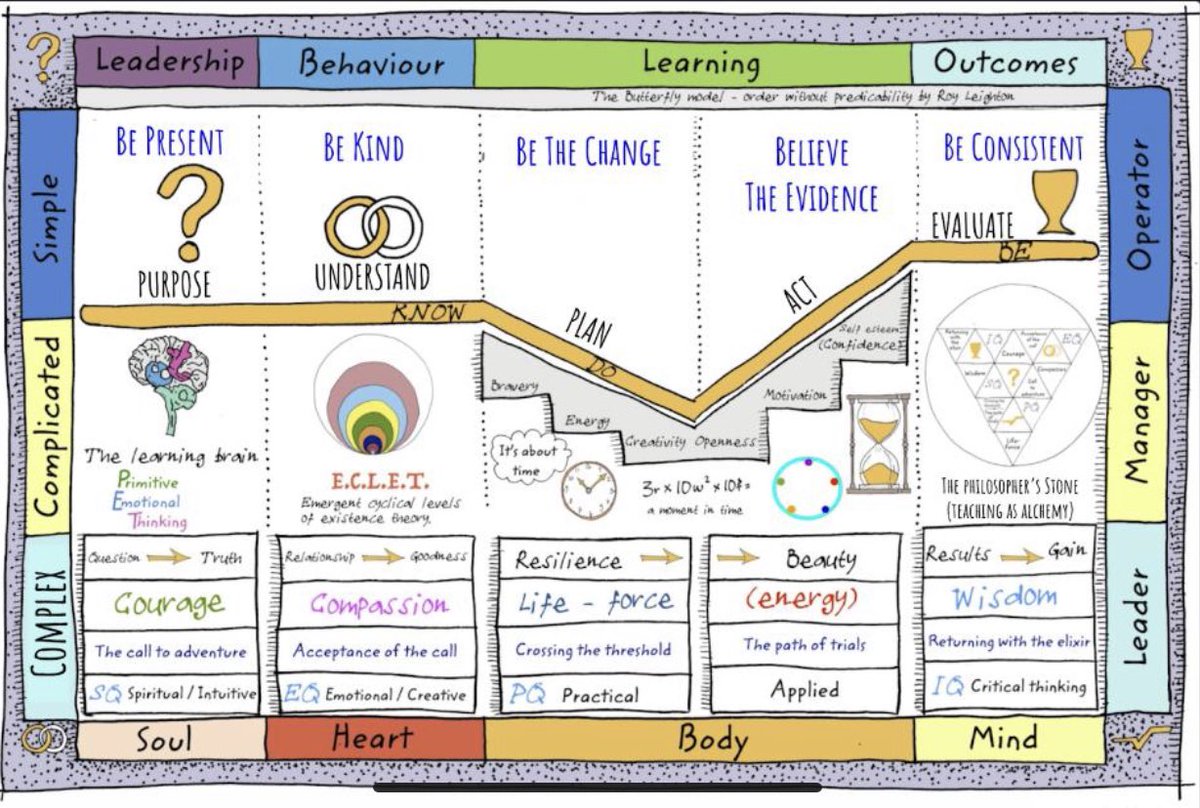 Leadership
Behaviour
Learning
Outcomes
The Butterfly model - order without predicability by Roy Leighton
Simple
BE PRESENT
BE KIND
BE THE CHANGE
BELIEVE
THE EVIDENCE
BE CONSISTENT
Operator
PURPOSE
UNDERSTAND
EVALUATE
KNOW
PLAN
DO
ACT
BE
Complicated
The learning brain
Primitive
Emotional
Thinking
E.C.L.E.T.
Emergent cyclical levels
of existence theory.
Bravery
Energy
Creativity
Openness
Motivation
Self esteem
(Confidence)
It's about
time
a moment in time
IQ
EQ
Courage
Wisdom
SQ
?
PQ
THE PHILOSOPHER'S STONE
(TEACHING AS ALCHEMY)
Manager
COMPLEX
Question
Truth
Relationship
Goodness
Resilience
Beauty
Results
Gain
Courage
Compassion
Life - force
(energy)
Wisdom
The call to adventure
Acceptance of the call
Crossing the threshold
The path of trials
Returning with the elixir
SQ Spiritual / Intuitive
EQ Emotional / Creative
PQ Practical
Applied
IQ Critical thinking
Leader
Soul
Heart
Body
Mind